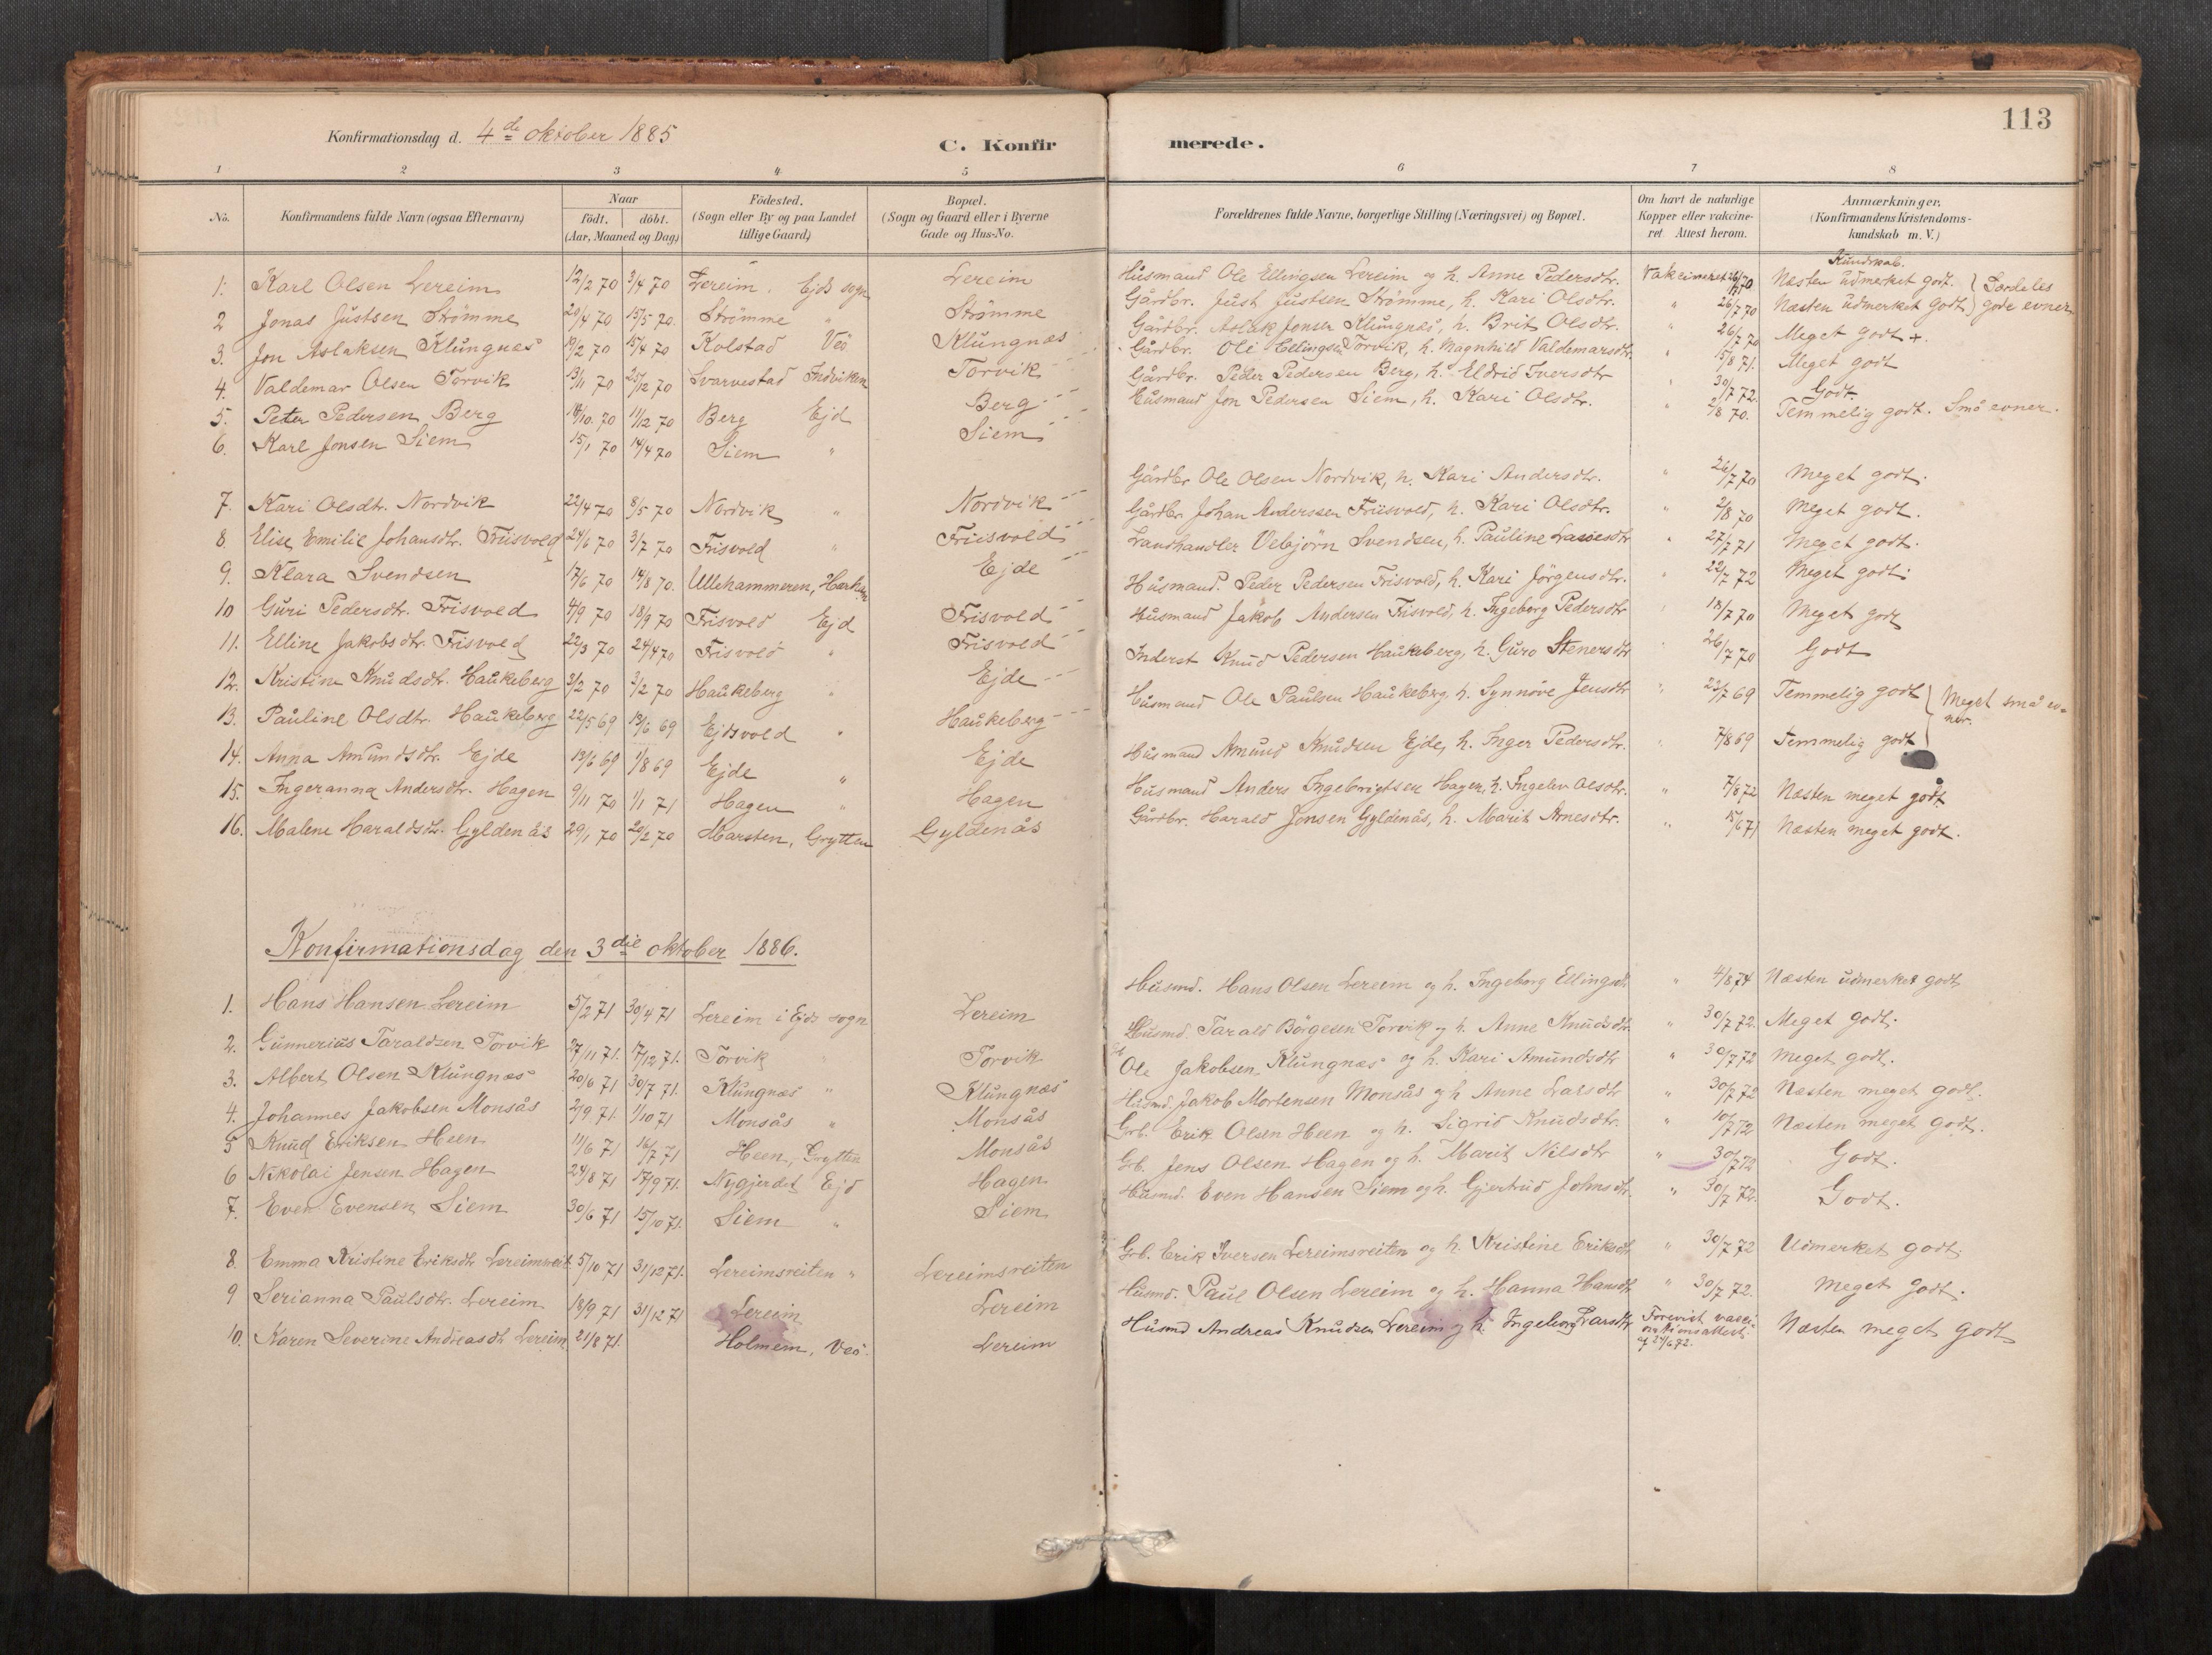 113
Konfirmationsdag d. 4de oktober 1885
C. Konfirmerede.
1 2 3 4 5 6 7 8
No. Konfirmandens fulde Navn (ogsaa Efternavn) Naar födt. döbt. (Aar, Maaned og Dag) Födested. (Sogn eller By og paa Landet tillige Gaard) Bopæl. (Sogn og Gaard eller i Byerne Gade og Hus-No. Forældrenes fulde Navne, borgerlige Stilling (Næringsvei) og Bopæl. Om havt de naturlige Kopper eller vakcineret. Attest herom. Anmærkninger. (Konfirmandens Kristendomskundskab m. V.)
Kundskab.
1. Karl Olsen Lereim 12/2 70 3/4 70 Lereim. Ejds sogn Lereim Husmand Ole Ellingsen Lereim og h. Anne Pedersdtr. Vakcineret 26/7 70 Næsten udmerket godt. } Særdeles
2 Jonas Justsen Strömme 20/4 70 15/5 70. Strömme " Strömme Gårdbr. Just Justsen Strömme, h. Kari Olsdtr. " 26/7 70 Næsten udmerket godt. } gode evner
3. Jon Aslaksen Klungnæs 19/2 70 15/4 70 Kolstad Veö Klungnæs Gårdbr. Aslak Jonsen Klungnæs, h. Brit Olsdtr. " 26/7 70 Meget godt +.
4. Valdemar Olsen Torvik 13/11 70 25/12 70 Svarvestad Indviken Torvik Gårdbr. Ole Ellingsen Torvik, h. Magnhild Valdemarsdtr. " 15/8 71. Meget godt
5. Peter Pedersen Berg 18/10. 70 11/12 70 Berg Ejd Berg Gårdbr. Peder Pedersen Berg, h. Eldrid Iversdtr " 30/7 72. Godt.
6. Karl Jonsen Siem 15/1 70 14/4 70 Siem " Siem Husmand Jon Pedersen Siem, h. Kari Olsdtr. " 2/8 70. Temmelig godt. Små evner.
7. Kari Olsdtr. Nordvik 22/4 70 8/5 70 Nordvik " Nordvik Gårdbr Ole Olsen Nordvik, h. Kari Andersdtr. " 26/7 70 Meget godt.
8. Elise Emilie Johansdtr. Friisvold 24/6 70 3/7 70 Frisvold " Friisvold Gårdbr Johan Anderssen Friisvold, h. Kari Olsdtr. " 2/8 70 Meget godt.
9. Klara Svendsen 17/6 70 14/8 70. Ullahammeren, Ejde Landhandler Vebjörn Svendsen, h. Pauline " 27/7 71 Meget godt.
10 Guri Pedersdtr. Frisvold 4/9 70 18/9 70 Frisvold Ejd Frisvold Husmand. Peder Pedersen Frisvold, h. Kari Jörgensdtr. " 22/7 72 Meget godt.
11. Elline Jakobsdtr. Frisvold 22/3 70 24/4 70 Frisvold " Frisvold Husmand Jakob Andersen Frisvold, h. Ingeborg Pedersdtr " 18/7 70 Meget godt
12. Kristine Knudsdtr. Haukeberg 3/2 70 3/2 70 Haukeberg " Ejde Inderst Knud Pedersen Haukeberg, h. Guro Stenersdtr " 26/7 70 Godt
13. Pauline Olsdtr. Haukeberg 22/5 69 13/6 69 Ejdsvold " Haukeberg Husmand Ole Paulsen Haukeberg, h. Synnöve Jensdtr " 23/7 69 Temmelig godt } Meget små ev-
14. Anna Amundsdtr. Ejde 13/6 69 1/8 69 Ejde " Ejde Husmand Amund Knudsen Ejde, h. Inger Pedersdtr. " 7/8 69 Temmelig godt } ner.
15. Ingeranna Andersdtr. Hagen 9/11 70 1/1 71 Hagen " Hagen Husmand Anders Ingebrigtsen Hagen, h. Ingelev Olsdtr. " 7/8 72 Næsten meget godt
16. Malene Haraldsdtr. Gyldenås 29/1 70 20/2 70 Marsten, Grytten Gyldenås Gårdbr. Harald Jonsen Gyldenås, h. Marit Arnesdtr. " 15/6 71 Næsten meget godt.
Konfirmationsdag den 3die oktober 1886.
1. Hans Hansen Lereim 5/2 71 30/4 71 Lereim i Ejds sogn Lereim Husmd. Hans Olsen Lereim og h. Ingeborg Ellingsdt. " 4/8 74 Næsten udmerket godt
2. Gunnerius Taraldsen Torvik 27/11 71. 17/12 71. Torvik " Torvik Husmd. Tarald Börgesen Torvik og h. Anne Knudsdtr. " 30/7 72. Meget godt.
3. Albert Olsen Klungnæs 20/6 71 30/7 71. Klungnæs " Klungnæs Ole Jakobsen Klungnæs og h. Kari Amundsdtr " 30/7 72 Meget godt.
4. Johannes Jakobsen Monsås 2/9 71. 1/10 71 Monsås " Monsås Husmd. Jakob Mortensen Monsås og h Anne Larsdtr " 30/7 72 Næsten meget godt.
5 Knud Eriksen Heen 11/6 71 16/7 71 Heen, Grytten Monsås Grb. Erik Olsen Heen og h. Sigrid Knudsdtr. " 10/7 72 Næsten meget godt.
6 Nikolai Jensen Hagen 24/8 71 17/9 71. Nygjerdet, Ejd Hagen Grb. Jens Olsen Hagen og h. Marit Nilsdtr " 30/7 72 Godt.
7. Even Evensen Siem 30/6 71 15/10 71. Siem " Siem Husmd. Even Hansen Siem og h. Gjertrud Johnsdtr. " 30/7 72. Godt.
8. Emma Kristine Eriksdtr Lereimsreit. 5/10 71 31/12 71. Lereimsreiten " Lereimsreiten Grb. Erik Iversen Lereimsreiten og h. Kristine Eriksdtr " 30/7 72 Udmerket godt.
9 Serianna Paulsdtr. Lereim 18/9 71 31/12 71 Lereim Lereim Husmd. Paul Olsen Lereim og h. Hanna Hansdtr " 30/7 72. Meget godt.
10. Karen Severine Andreasdt. Lereim 21/8 71. Holmem, Veö. Lereim Husmd Andreas Knudsen Lereim og h. Ingeborg Larsdtr Forevist vacci-
nationsattest
af 24/6 72. Næsten meget godt